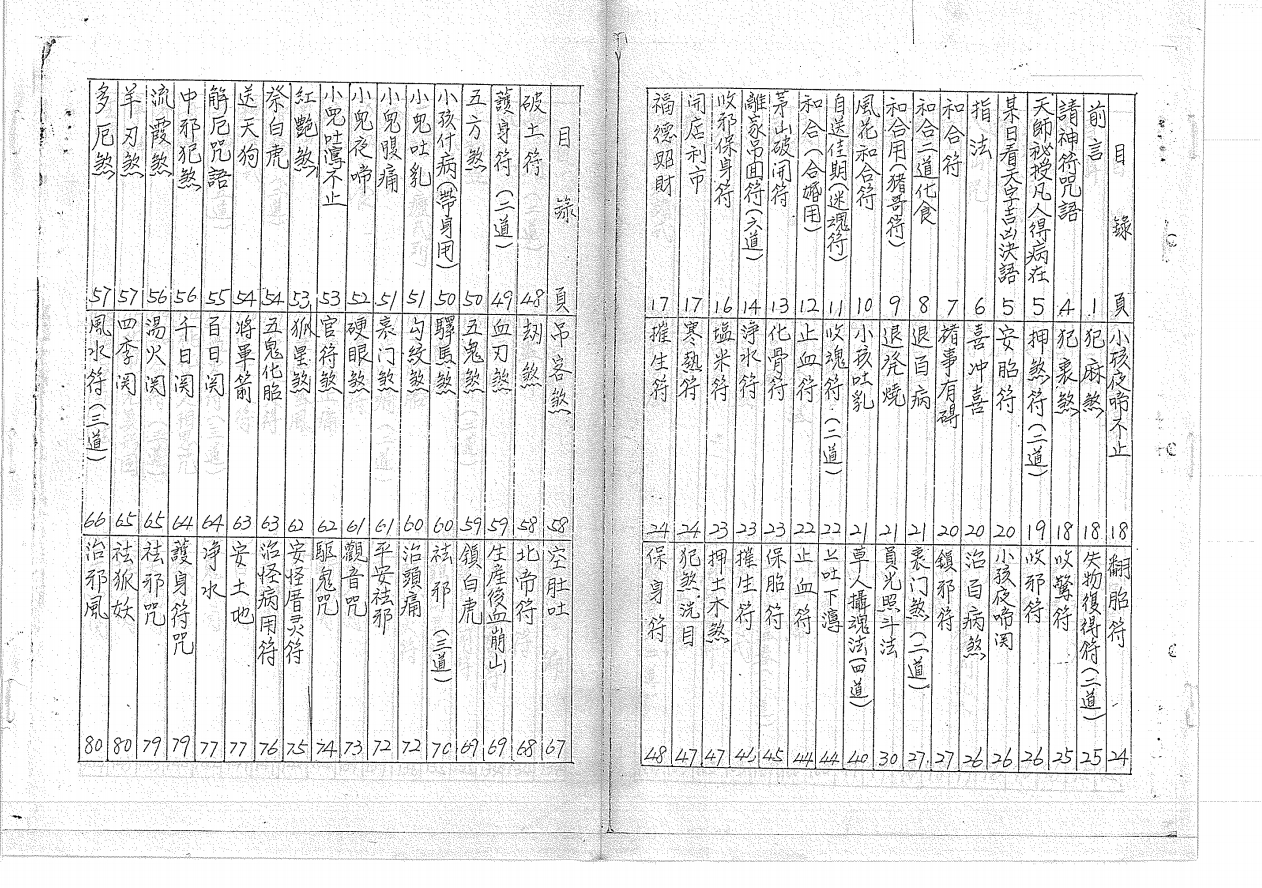 目錄 頁
前言 1
請神符咒語 4
天師祕授凡人得病在 5
某日看天字吉凶決語 5
指法 6
和合符 7
和合二道化食 8
和合用(猪哥符) 9
風花和合符 10
自送佳期(迷魂符) 11
和合(合婚用) 12
茅山破開符 13
離家吊回符(六道) 14
收邪保身符 16
開店利市 17
福德賜財 17
小孩夜啼不止 18
犯麻煞 18
犯喪煞 18
押煞符(二道) 19
安胎符 20
喜冲喜 20
諸事有碍 20
退百病 21
退発燒 21
小孩吐乳 21
收魂符(二道) 22
止血符 22
化骨符 23
淨水符 23
塩米符 23
寒熱符 24
摧生符 24
翻胎符 24
失物復得符(二道) 25
收驚符 25
收邪符 26
小孩夜啼関 26
治百病煞 26
鎖邪符 27
喪门煞(二道) 27
員光照斗法 30
草人攝魂法(四道) 40
上吐下瀉 44
止血符 44
保胎符 45
摧生符 46
押土木煞 47
犯煞洗目 47
保身符 48
目錄 頁
破土符 48
護身符(二道) 49
五方煞 50
小孩什病(帶身用) 50
小兒吐乳 51
小鬼腹痛 51
小兒夜啼 52
小兒吐瀉不止 53
紅艷煞 53
祭白虎 54
送天狗 54
解厄咒語 55
中邪犯煞 56
流霞煞 56
羊刃煞 57
多厄煞 57
吊客煞 58
劫煞 58
血刃煞 59
五鬼煞 59
驛馬煞 60
勾紋煞 60
喪门煞 61
硬眼煞 61
官符煞 62
狐星煞 62
五鬼化胎 63
將軍箭 63
百日関 64
千日関 64
湯火関 65
四季関 65
風水符(三道) 66
空肚吐 67
北帝符 68
生産後血崩山 69
鎖白虎 69
祛邪(三道) 70
治頭痛 72
平安祛邪 72
觀音咒 73
驅鬼咒 74
安怪厝灵符 75
治怪病用符 76
安土地 77
净水 77
護身符咒 79
祛邪咒 79
祛狐妖 80
治邪風 80